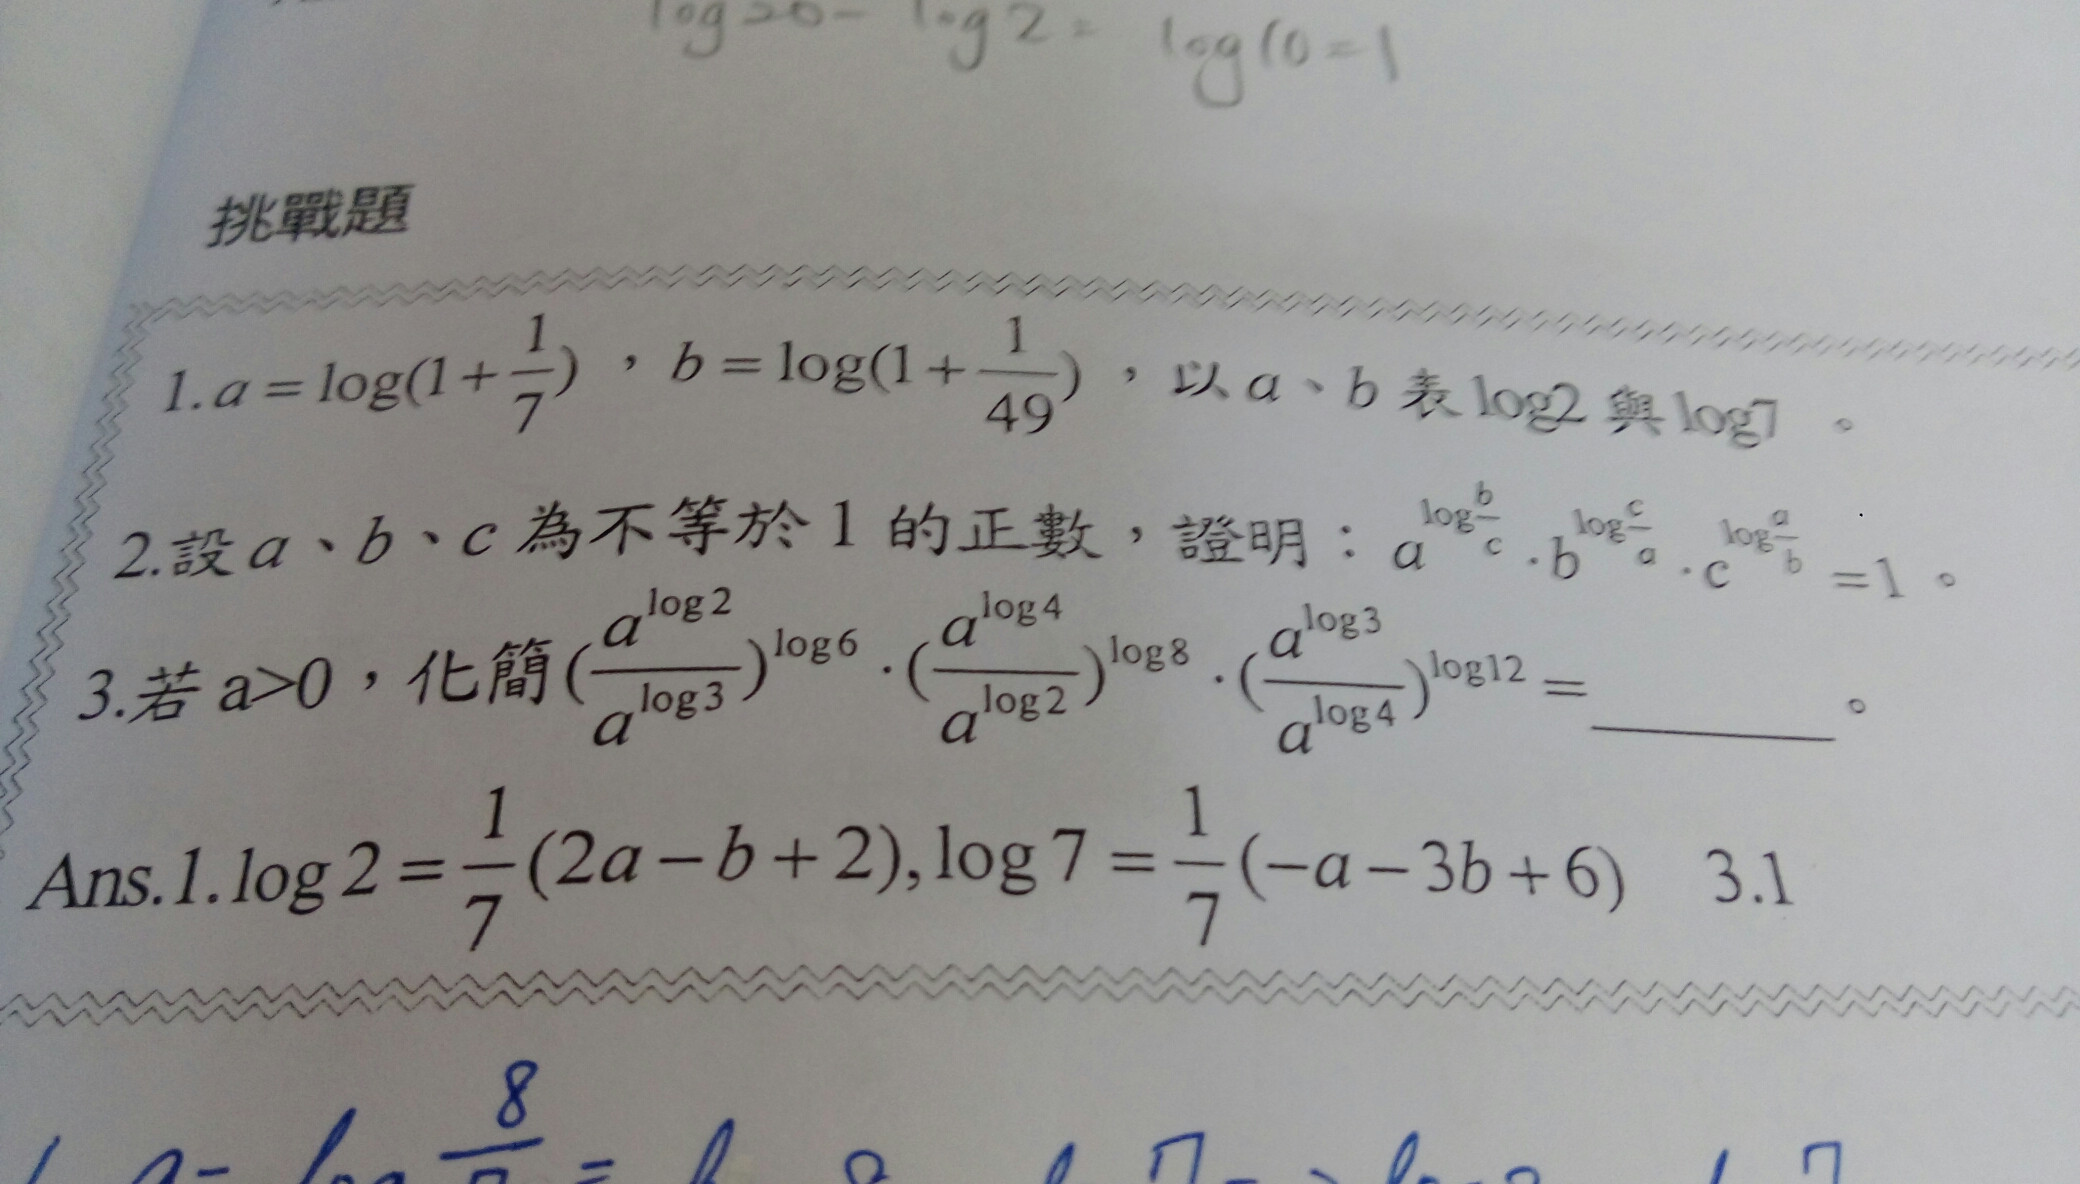 log20 - log2 = log10 = 1
挑戰題
1. a = log(1+1/7) ，b = log(1+1/49) ，以 a、b 表 log2 與 log7 。
2.設 a、b、c 為不等於 1 的正數，證明：a^(log b/c) · b^(log c/a) · c^(log a/b) =1。
3.若 a>0，化簡(a^(log2)/a^(log3))^(log6) · (a^(log4)/a^(log2))^(log8) · (a^(log3)/a^(log4))^(log12) = ______ 。
Ans.1. log 2 = 1/7(2a − b + 2), log 7 = 1/7(−a − 3b + 6) 3.1
a = log 8/7 =